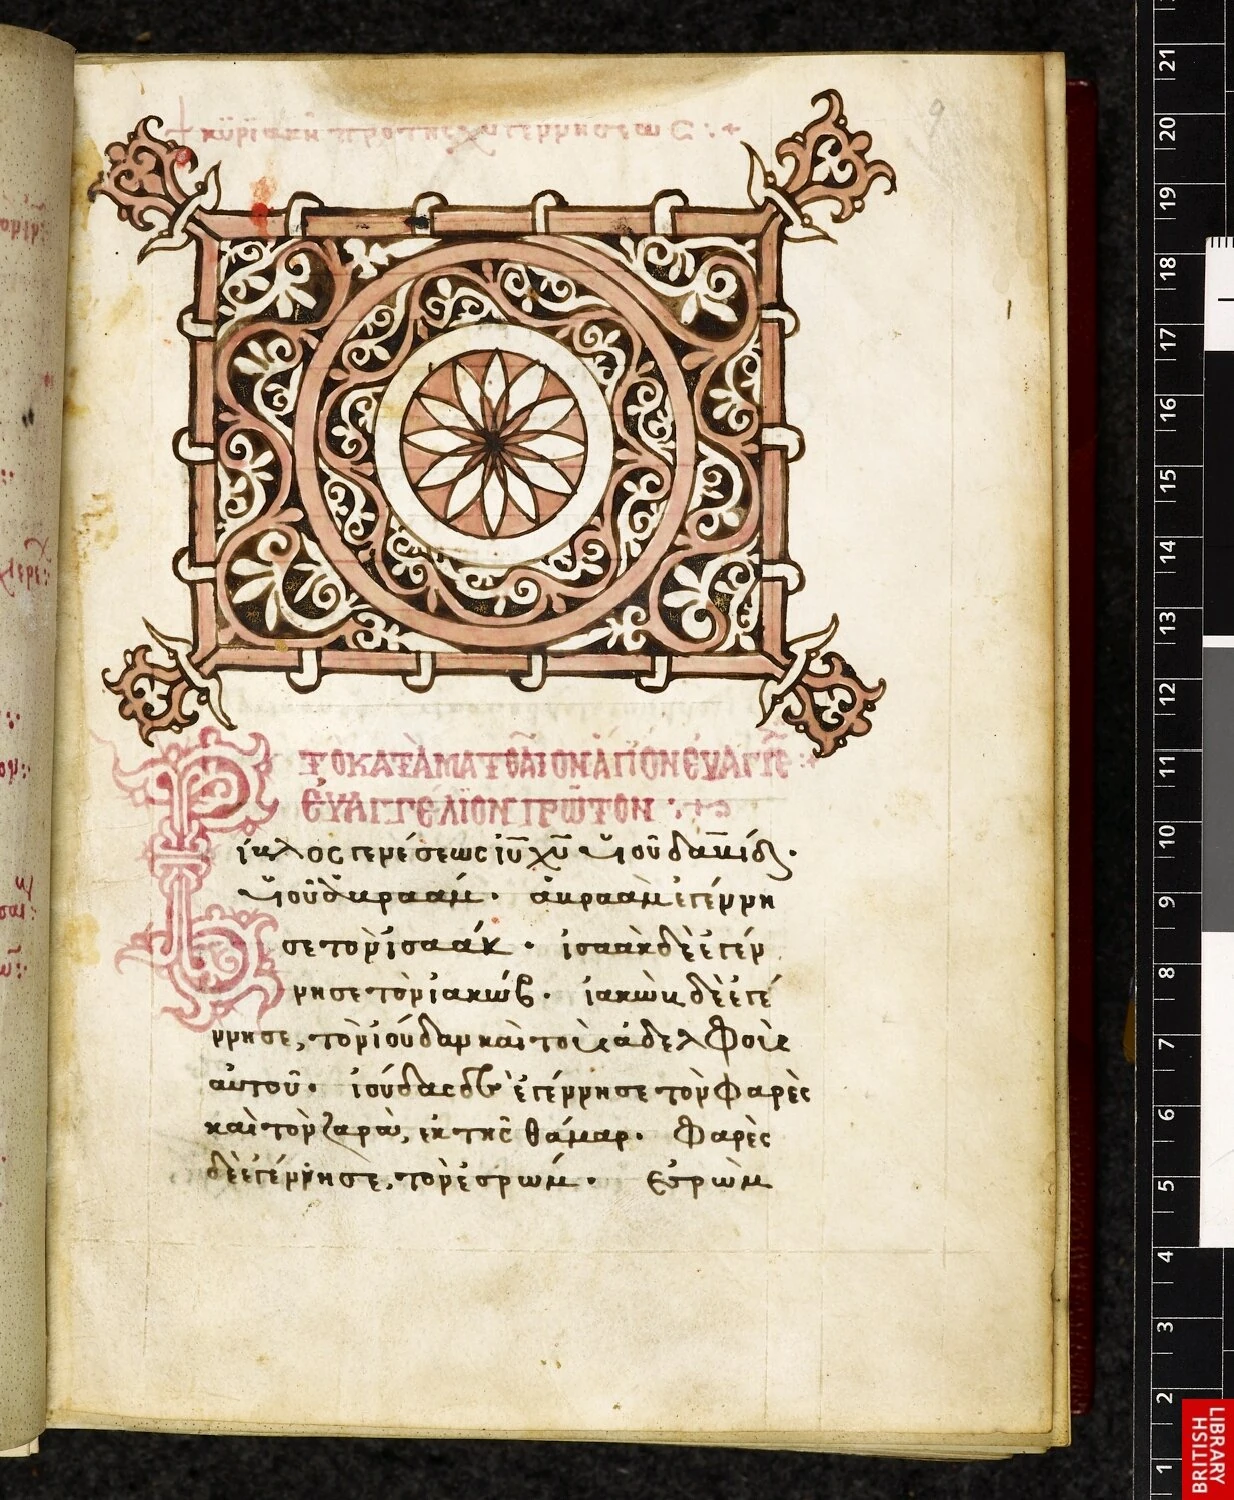 + κυριακῆ πρὸ τῆς χυ γεννήσεως :+
9
ΤΟ ΚΑΤᾺ ΜΑΤΘΑῖΟΝ ἉΓΙΟΝ ἘΥΑΓΓΕ :+
ἘΥΑΓΓΈΛΙΟΝ ΠΡΩΤΟΝ :+
Βίβλος γενέσεως ἰῦ χῦ ὑιοῦ δαυίδ·
ὑιοῦ ἀβραάμ· ἀβραὰμ ἐγέννη
σε τὸν ἰσαάκ· ἰσαὰκ δὲ ἐγέν
νησε τὸν ἰακώβ· ἰακὼβ δὲ ἐγέ
ννησε, τὸν ἰούδαν καὶ τοὺς ἀδελφοὺς
αὐτοῦ· ἰούδας δὲ ἐγέννησε τὸν Φαρὲς
καὶ τὸν ζαρὰ, ἐκ τῆς θάμαρ· Φαρὲς
δὲ ἐγέννησε, τὸν ἐσρώμ· Ἐσρὼμ
21
20
19
18
17
16
15
14
13
12
11
10
9
8
7
6
5
4
3
2
1
BRITISH
LIBRARY